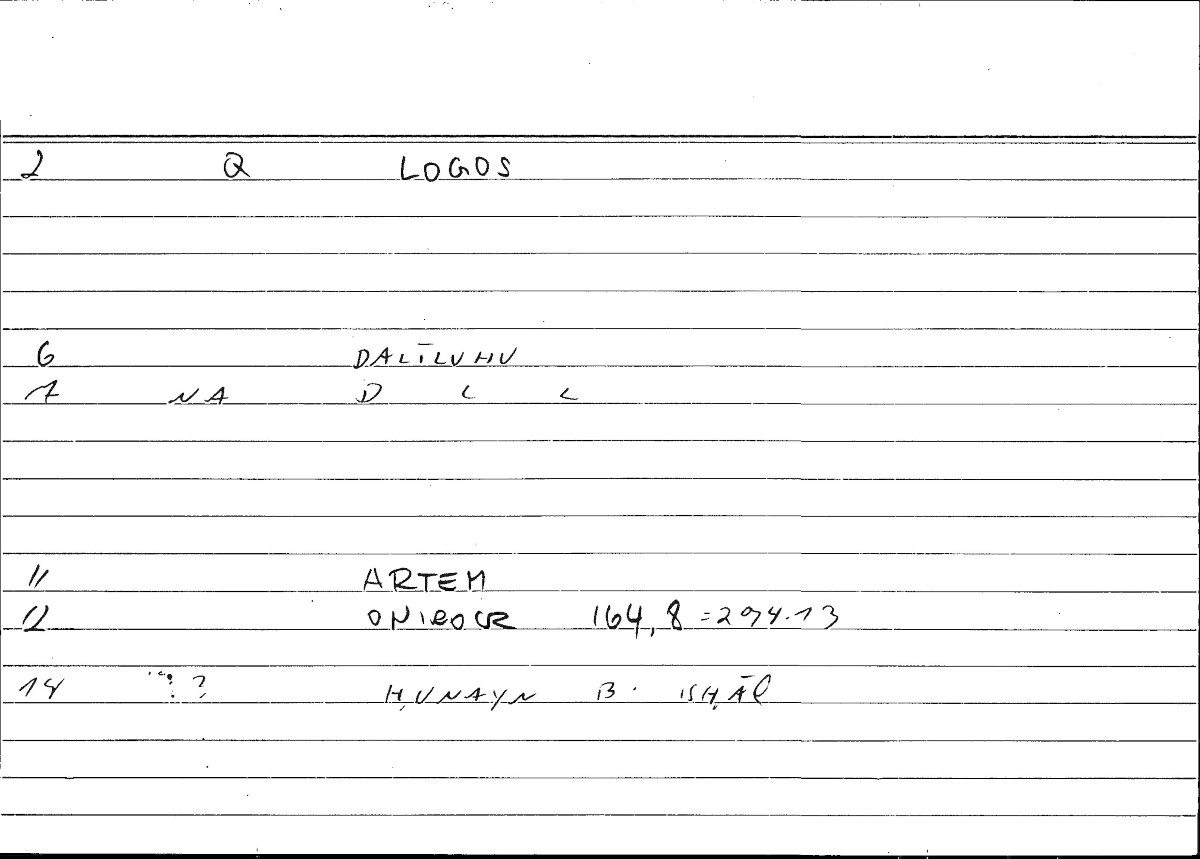 2 Q LOGOS
6 DALĪLUHU
7 NA D L L
11 ARTEM
12 ONIROCR 164,8 = 294.13
14 ?? ḤUNAYN B. ISḤĀQ